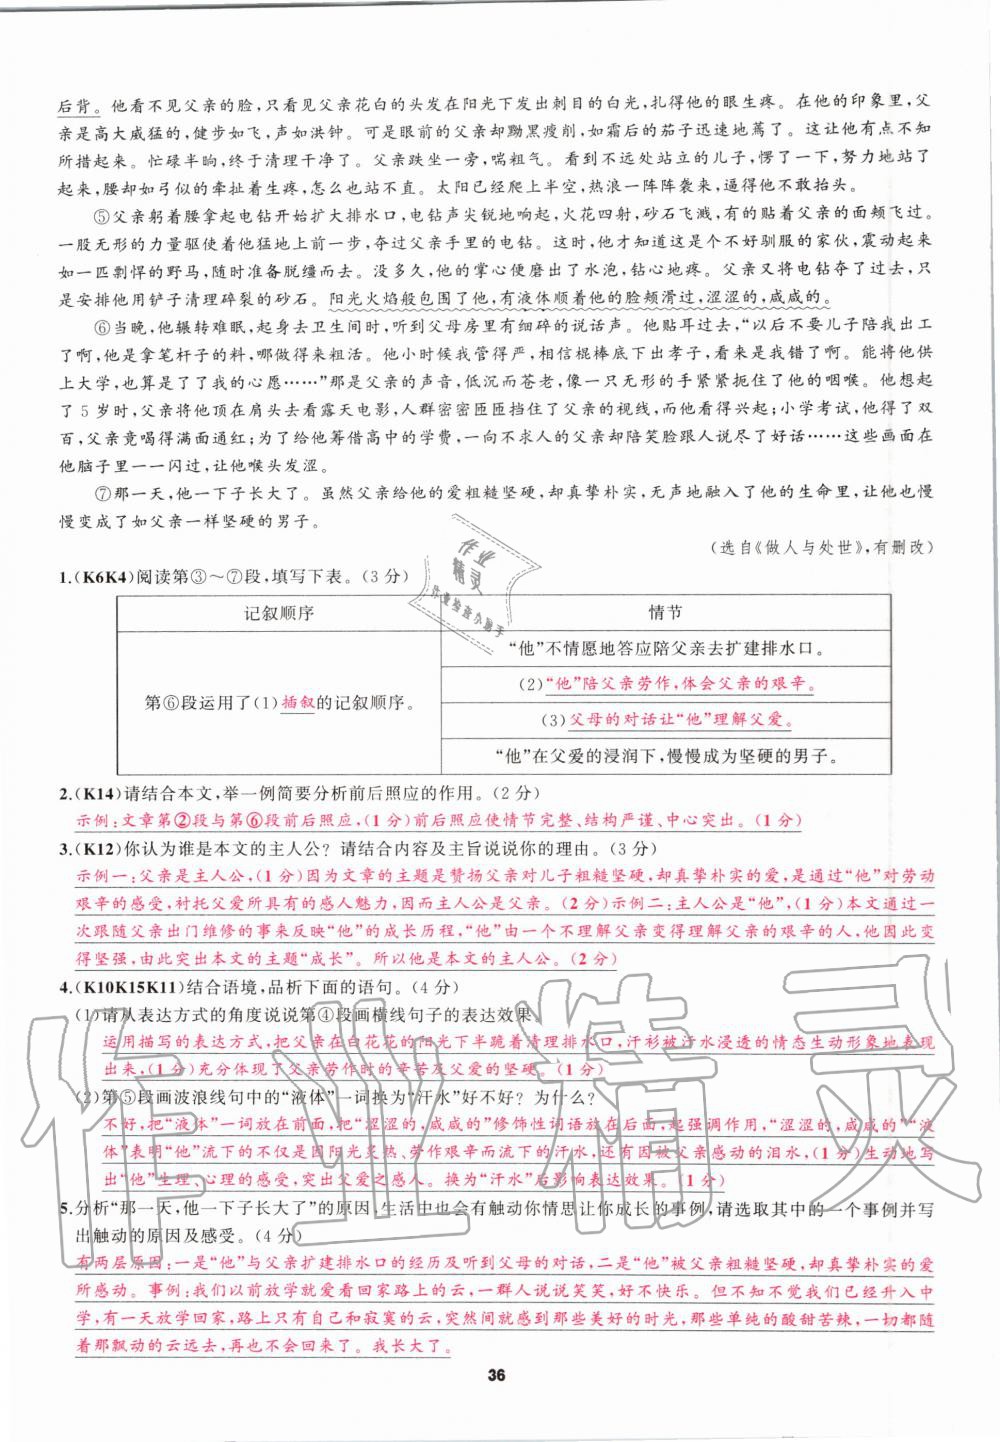 后背。他看不见父亲的脸,只看见父亲花白的头发在阳光下发出刺目的白光,扎得他的眼生疼。在他的印象里,父
亲是高大威猛的,健步如飞,声如洪钟。可是眼前的父亲却黝黑瘦削,如霜后的茄子迅速地蔫了。这让他有点不知
所措起来。忙碌半晌,终于清理干净了。父亲跌坐一旁,喘粗气。看到不远处站立的儿子,愣了一下,努力地站了
起来,腰却如弓似的牵扯着生疼,怎么也站不直。太阳已经爬上半空,热浪一阵阵袭来,逼得他不敢抬头。
⑤父亲躬着腰拿起电钻开始扩大排水口,电钻声尖锐地响起,火花四射,砂石飞溅,有的贴着父亲的面颊飞过。
一股无形的力量驱使着他猛地上前一步,夺过父亲手里的电钻。这时,他才知道这是一个不好驯服的家伙,震动起来
如一匹剽悍的野马,随时准备脱缰而去。没多久,他的掌心便磨出了水泡,钻心地疼。父亲又将电钻夺了过去,只
是安排他用铲子清理碎裂的砂石。阳光火焰般包围了他,有液体顺着他的脸颊滑过,涩涩的,咸咸的。
⑥当晚,他辗转难眠,起身去卫生间时,听到父母房里有细碎的说话声。他贴耳过去,“以后不要儿子陪我出工
了吧,他是拿笔杆子的料,哪做得来粗活。他小时候我管得严,相信棍棒底下出孝子,看来是我错了啊。能将他供
上大学,也算是了了我的心愿……”那是父亲的声音,低沉而苍老,像一只无形的手紧紧扼住了他的咽喉。他想起
了5岁时,父亲将他顶在肩头去看露天电影,人群密密匝匝挡住了父亲的视线,而他看得兴起;小学考试,他得了双
百,父亲竟喝得满面通红;为了给他筹借高中的学费,一向不求人的父亲却陪笑脸跟人说尽了好话……这些画面在
他脑子里一一闪过,让他喉头发涩。
⑦那一天,他一下子长大了。虽然父亲给他的爱粗糙坚硬,却真挚朴实,无声地融入了他的生命里,让他也慢
慢变成了如父亲一样坚硬的男子。
(选自《做人与处世》,有删改)
1.(K6K4)阅读第③~⑦段,填写下表。(3分)
记叙顺序 情节
第⑥段运用了(1)插叙的记叙顺序。
“他”不情愿地答应陪父亲去扩建排水口。
(2)“他”陪父亲劳作,体会父亲的艰辛。
(3)父母的对话让“他”理解父爱。
“他”在父爱的浸润下,慢慢成为坚硬的男子。
2.(K14)请结合本文,举一例简要分析前后照应的作用。(2分)
示例:文章第②段与第⑥段前后照应,(1分)前后照应使情节完整、结构严谨、中心突出。(1分)
3.(K12)你认为谁是本文的主人公?请结合内容及主旨说说你的理由。(3分)
示例一:父亲是主人公,(1分)因为文章的主题是赞扬父亲对儿子粗糙坚硬,却真挚朴实的爱,是通过“他”对劳动
艰辛的感受,衬托父爱所具有的感人魅力,因而主人公是父亲。(2分)示例二:主人公是“他”,(1分)本文通过一
次跟随父亲出门维修的事来反映“他”的成长历程,“他”由一个不理解父亲变得理解父亲的艰辛的人,他因此变
得坚强,由此突出本文的主题“成长”。所以他是本文的主人公。(2分)
4.(K10K15K11)结合语境,品析下面的语句。(4分)
(1)请从表达方式的角度说说第④段画横线句子的表达效果。
运用描写的表达方式,把父亲在白花花的阳光下半跪着清理排水口,汗衫被汗水浸透的情态生动形象地表现
出来,(1分)充分体现了父亲劳作时的辛苦及父爱的坚硬。(1分)
(2)第⑤段画波浪线句中的“液体”一词换为“汗水”好不好?为什么?
不好,把“液体”一词放在前面,把“涩涩的,咸咸的”修饰性词语放在后面,起强调作用,“涩涩的,咸咸的”“液
体”表明“他”流下的不仅是因阳光炙热、劳作艰辛而流下的汗水,还有因被父亲感动的泪水,(1分)生动地写
出“他”生理、心理的感受,突出父爱之感人。换为“汗水”后影响表达效果。(1分)
5.分析“那一天,他一下子长大了”的原因,生活中也会有触动你情思让你成长的事例,请选取其中的一个事例并写
出触动的原因及感受。(4分)
有两层原因:一是“他”与父亲扩建排水口的经历及听到父母的对话,二是“他”被父亲粗糙坚硬,却真挚朴实的爱
所感动。事例:我们以前放学就爱看回家路上的云,一群人说说笑笑,好不快乐。但不知不觉我们已经升入中
学,有一天放学回家,路上只有我和寂寞的云,突然间就感到那些美好的时光,那些单纯的酸甜苦辣,一切都随着
那飘动的云远去,再也不会回来了。我长大了。
36
作业
精灵
作业检查小助手
作业精灵